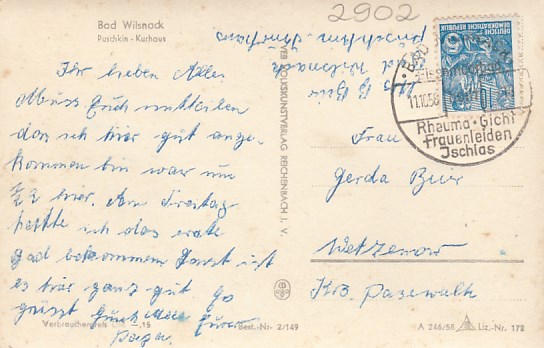 2902
Bad Wilsnack
Puschkin - Kurhaus
Ihr lieben Alles
Muss Euch mitteilen
das ich hier gut ange-
kommen bin war um
hier. Am Freitag
hatte ich das erste
Bad bekommen Sonst ist
es hier ganz gut So
grüsst Euch alle Euer
Papa
Verbraucherpreis ,15
VEB VOLKSKUNSTVERLAG REICHENBACH I. V.
Best.-Nr. 2/149
Bad Wilsnack
DEUTSCHE
DEMOKRATISCHE REPUBLIK
11.10.58
Rheuma · Gicht
Frauenleiden
Ischias
Frau
Gerda Bier
Wetzenow
Krs. Pasewalk
A 246/58 Liz.-Nr. 172